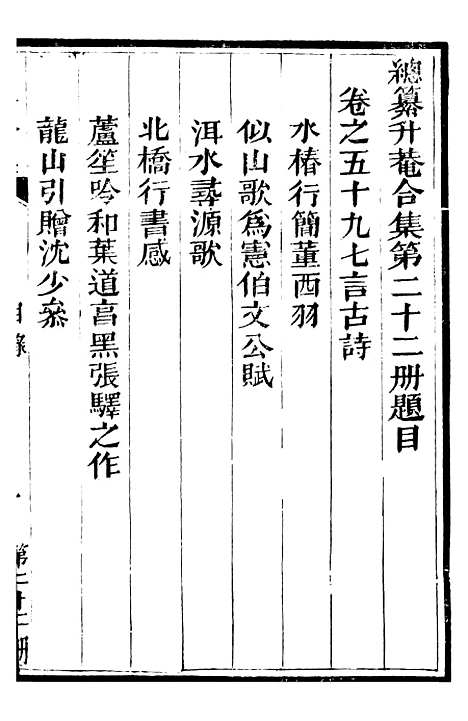 總纂升菴合集第二十二册題目
卷之五十九七言古詩
水椿行簡董西羽
似山歌爲憲伯文公賦
洱水尋源歌
北橋行書感
蘆笙吟和葉道亯黑張驛之作
龍山引贈沈少叅
目錄
一
第二十二册